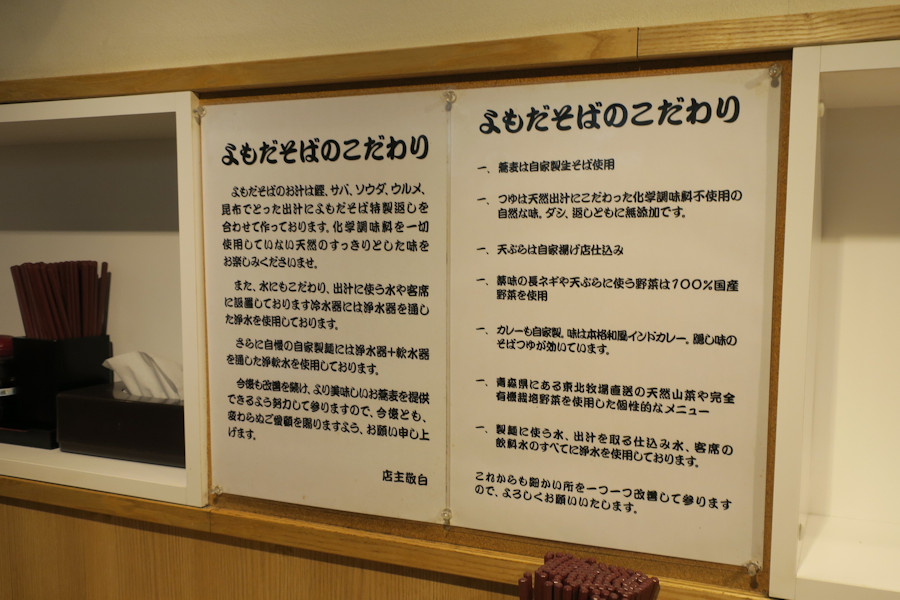 よもだそばのこだわり
よもだそばのお汁は鰹、サバ、ソウダ、ウルメ、
昆布でとった出汁によもだそば特製返しを
合わせて作っております。化学調味料を一切
使用していない天然のすっきりとした味を
お楽しみくださいませ。
また、水にもこだわり、出汁に使う水や客席
に設置しております冷水器には浄水器を通し
た浄水を使用しております。
さらに自慢の自家製麺には浄水器+軟水器
を通した浄軟水を使用しております。
今後も改善を続け、より美味しいお蕎麦を提供
できるよう努力して参りますので、今後とも、
変わらぬご愛顧を賜りますよう、お願い申し上
げます。
店主敬白
よもだそばのこだわり
一、蕎麦は自家製生そば使用
一、つゆは天然出汁にこだわった化学調味料不使用の
自然な味。ダシ、返しともに無添加です。
一、天ぷらは自家揚げ店仕込み
一、薬味の長ネギや天ぷらに使う野菜は100%国産
野菜を使用
一、カレーも自家製。味は本格和風インドカレー。隠し味の
そばつゆが効いています。
一、青森県にある東北牧場直送の天然山菜や完全
有機栽培野菜を使用した個性的なメニュー
一、製麺に使う水、出汁を取る仕込み水、客席の
飲料水のすべてに浄水を使用しております。
これからも細かい所を一つ一つ改善して参ります
ので、よろしくお願いいたします。